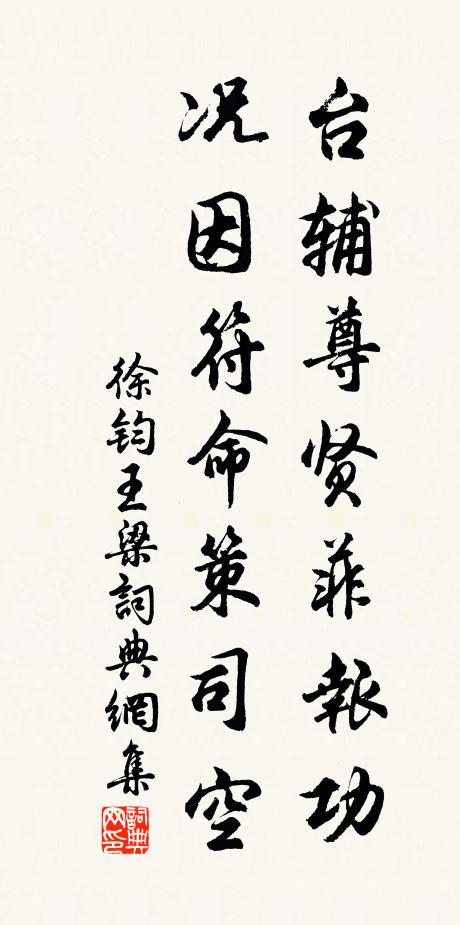 台辅尊贤菲報功
况因符命策司空
徐钧王梁詞典網集
詞典网印